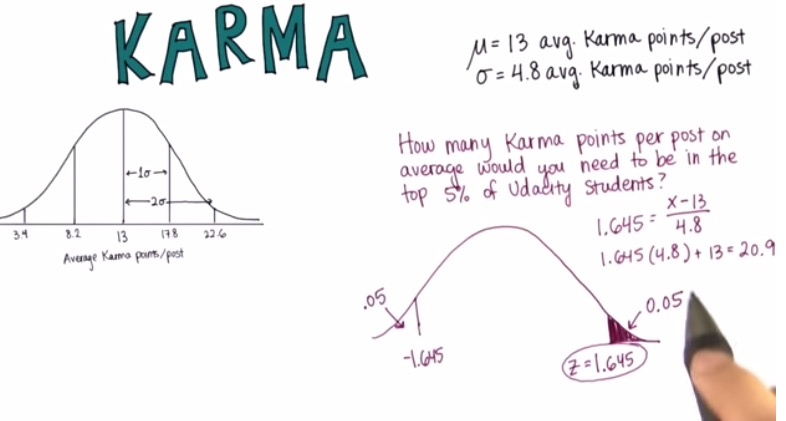 KARMA
μ = 13 avg. Karma points/post
σ = 4.8 avg. Karma points/post
←1σ→
←2σ→
3.4 8.2 13 17.8 22.6
Average Karma points/post
How many Karma points per post on
average would you need to be in the
top 5% of Udacity Students?
1.645 = x-13 / 4.8
1.645(4.8) + 13 = 20.9
.05
-1.645
0.05
z=1.645